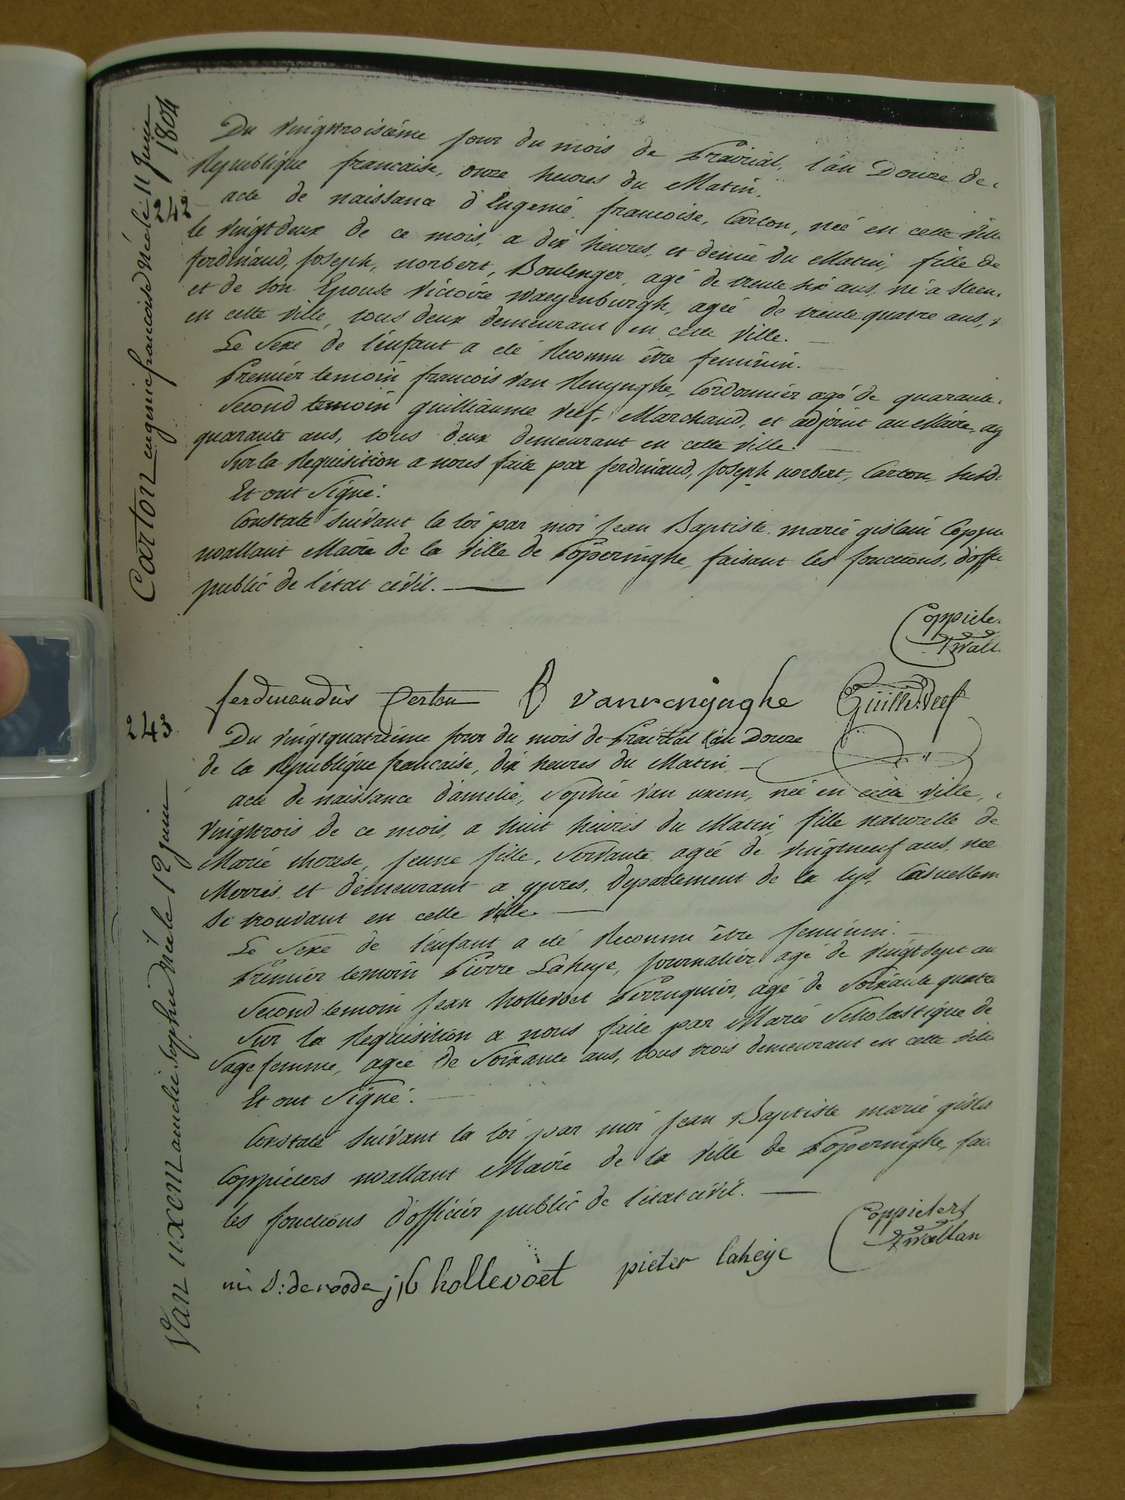 Carton eugenie francoise Née le 11 Juin 1804
242
Du vingttroisième jour du mois de Prairial, l'an Douze de
République francaise, onze heures du Matin.
acte de naissance d'Eugenié, francoise, Carton, née en cette ville
le vingtdeux de ce mois, a dix heures, et demie du Matin, fille de
ferdinand, Joseph, norbert, Boulenger, agé de trente six ans, né a
et de son Epouse Victoire Waeyenburgh, agée de trente quatre ans,
en cette ville, tous deux demeurant en cette ville.
Le Sexe de l'enfant a eté Reconnu être feminin.
Premier temoin francois Van Renynghe, Cordonnier agé de quarante
Second temoin guilliaume Veef, Marchand, et adjoint au Maire, ag
quarante ans, tous deux demeurant en cette ville.
Sur la Requisition a nous faite par ferdinand, Joseph norbert, Carton, susd.
Et ont Signé.
Constaté Suivant la loi par moi Jean Baptiste marié gislain Coppie
wallant Maire de la Ville de Poperinghe, faisant les fonctions, d'offi
public de l'état civil.
Coppiete
Wall
ferdinandus Certon B vanrenijnghe Guille Veef
243
Van uxem amelie Sophie Née le 12 juin
Du vingtquatrième jour du mois de Prairial l'an Douze
de la République francaise, dix heures du Matin.
acte de naissance d'amelie, Sophie Van uxem, née en cette ville,
vingttrois de ce mois, a huit heures du Matin, fille naturelle de
Marie therese, Jeune fille, Servante agée de vingtneuf ans, née
Merris, et demeurant a ypres, Departement de la lys, Casuellem
Se trouvant en cette ville.
Le Sexe de l'enfant a eté Reconnu être feminin.
Premier temoin Pierre Laheye, journalier agé de vingtsept an
Second temoin Jean hollevoet Perruquier, agé de Soixante quatre
Sur la Requisition a nous faite par Marié Scholastique de
Sagefemme, agée de Soixante ans, tous trois demeurant en cette ville
Et ont Signé.
Constaté Suivant la loi par moi Jean Baptiste marié gisla
Coppieters wallant Maire de la Ville de Poperinghe, fai
les fonctions d'officier public de l'état civil.
Coppieters
Wallan
m S: de roode j b hollevoet pieter laheije